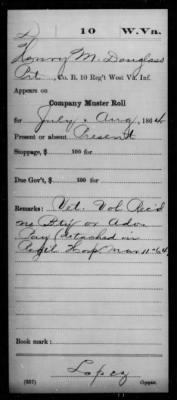 D 10 W.Va.
Henry M. Douglass
Pvt., Co. B, 10 Reg't West Va. Inf.
Appears on
Company Muster Roll
for July & Aug, 1864
Present or absent Present
Stoppage, $ 100 for
Due Gov't, $ 100 for
Remarks: Vet. Vol. Rec'd
no Bty or Adv.
Pay Detached in
Regtl Hosp Mar 11-64
Book mark:
Lopez
(357) Copyist.